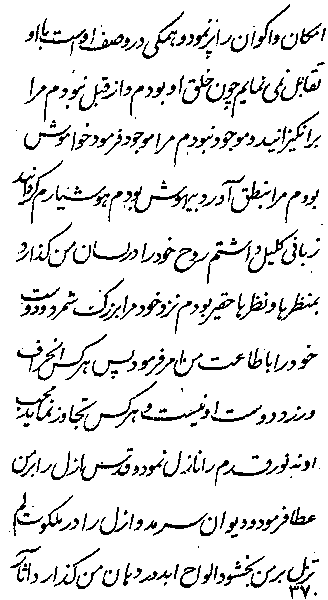 امکان و اکوان را پر نمود و همکی در وصف اوست با او
تقابل نمی نمایم چون خلق او بودم و از قبل نبودم مرا
برانگیزانید و موجود نبودم مرا موجود فرمود خاموش
بودم مرا بنطق آورد بیهوش بودم هوشیارم گردانید
زبانی کلیل داشتم روح خود را در لسان من گذارد
بمنظرها و نظرها حقیر بودم نزد خود مرا بزرگ شمرد دوست
خود را باطاعت من امر فرمود پس هر کس انحراف
ورزد دوست او نیست و هر کس تجاوز نماید محب
او نه نور قدم را نازل نمود و قدس ازل را بمن
عطا فرمود و دیوان سرمد و ازل را در ملکوت لم
یزل بر من بخشود الواح ابد در دهان من گذارد و آثار
۳۷۰